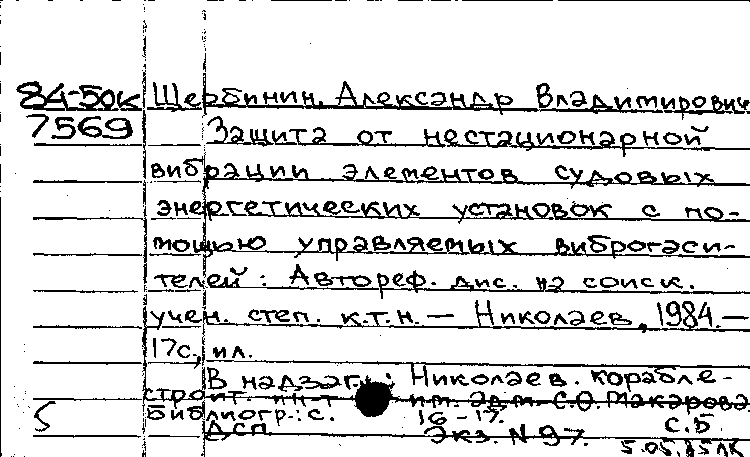 84-5ок Щербинин, Александр Владимирович
7569 Защита от нестационарной
вибрации элементов судовых
энергетических установок с по-
мощью управляемых виброгаси-
телей: Автореф. дис. на соиск.
учен. степ. к.т.н. — Николаев, 1984. —
17с., ил.
В надзаг.: Николаев. корабле-
строит. ин-т им. адм. С.О. Макарова
5 Библиогр.: с. 16-17. С.Б
ДСП. Экз. N 97.
5.05.85